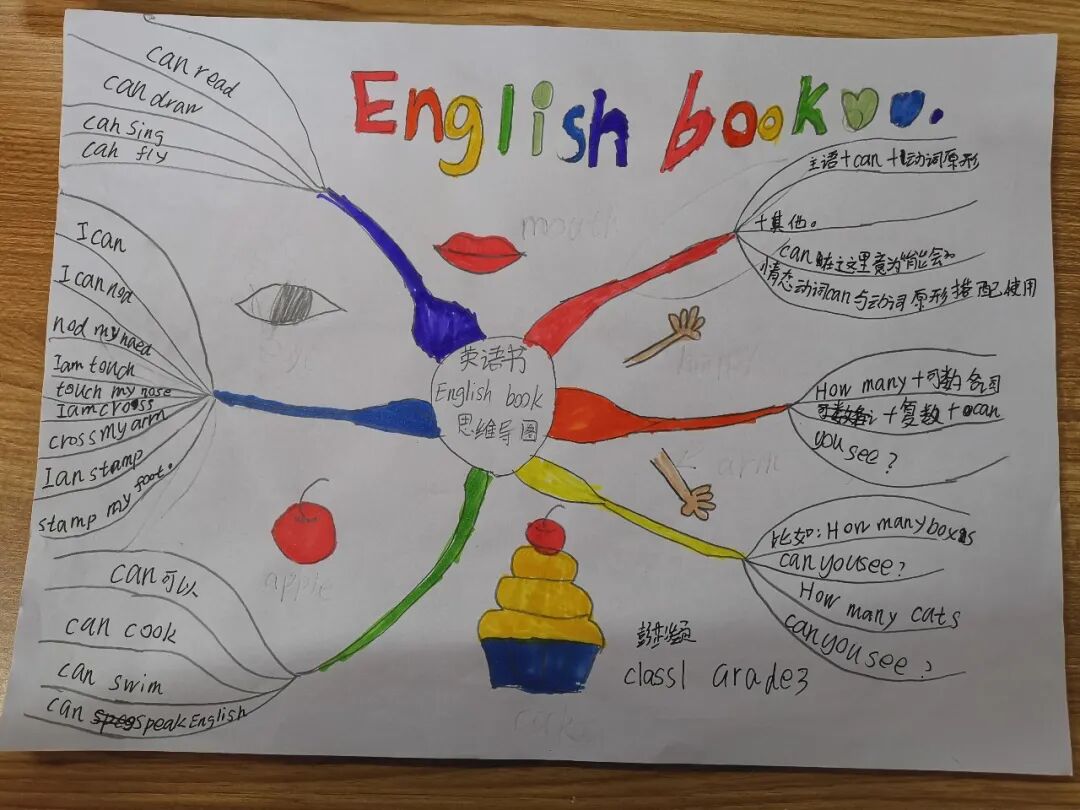 English book.
can read
can draw
can sing
can fly
I can
I can nod
nod my haed
I am touch
touch my nose
I am cross
cross my arm
I an stamp
stamp my foot.
can可以
can cook
can swim
can speak English
英语书
English book
思维导图
mouth
apple
arm
主语+can+动词原形
+其他。
can 在这里意为“能会”
情态动词can与动词原形搭配使用
How many+可数名词
+复数+can
you see?
比如:How many boxes
can you see?
How many cats
can you see?
class1 Grade3